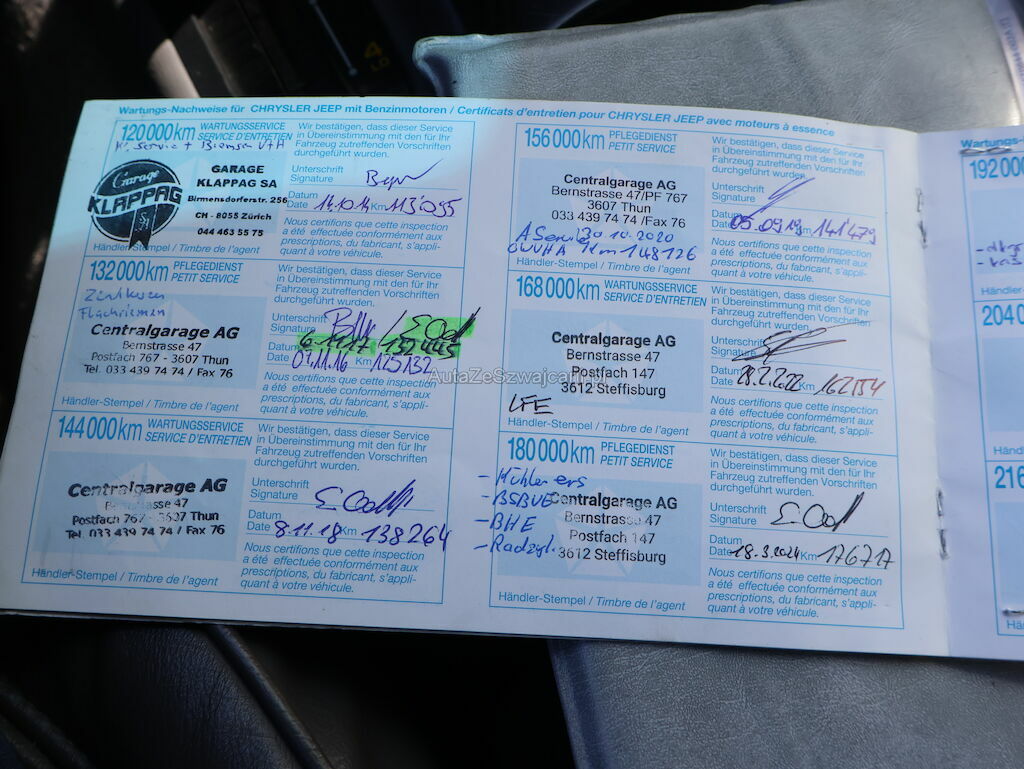 Wartungs-Nachweise für CHRYSLER JEEP mit Benzinmotoren / Certificats d'entretien pour CHRYSLER JEEP avec moteurs à essence
120 000 km WARTUNGSSERVICE
SERVICE D'ENTRETIEN
Service + Bremsen V+H
Garage
KLAPPAG
SA
GARAGE
KLAPPAG SA
Birmensdorferstr. 256
CH - 8055 Zürich
044 463 55 75
Händler-Stempel / Timbre de l'agent
Wir bestätigen, dass dieser Service
in Übereinstimmung mit den für Ihr
Fahrzeug zutreffenden Vorschriften
durchgeführt wurde.
Unterschrift
Signature
Datum
Date 14.10.14 Km 113'095
Nous certifions que cette inspection
a été effectuée conformément aux
prescriptions, du fabricant, s'appli-
quant à votre véhicule.
132 000 km PFLEGEDIENST
PETIT SERVICE
Flachriemen
Centralgarage AG
Bernstrasse 47
Postfach 767 - 3607 Thun
Tel. 033 439 74 74 / Fax 76
Händler-Stempel / Timbre de l'agent
Wir bestätigen, dass dieser Service
in Übereinstimmung mit den für Ihr
Fahrzeug zutreffenden Vorschriften
durchgeführt wurde.
Unterschrift
Signature
Datum 6.11.17 132445
Date 07.11.16 Km 125132
Nous certifions que cette inspection
a été effectuée conformément aux
prescriptions, du fabricant, s'appli-
quant à votre véhicule.
144 000 km WARTUNGSSERVICE
SERVICE D'ENTRETIEN
Centralgarage AG
Bernstrasse 47
Postfach 767 - 3607 Thun
Tel. 033 439 74 74 / Fax 76
Händler-Stempel / Timbre de l'agent
Wir bestätigen, dass dieser Service
in Übereinstimmung mit den für Ihr
Fahrzeug zutreffenden Vorschriften
durchgeführt wurde.
Unterschrift
Signature
Datum
Date 8.11.18 Km 138264
Nous certifions que cette inspection
a été effectuée conformément aux
prescriptions, du fabricant, s'appli-
quant à votre véhicule.
156 000 km PFLEGEDIENST
PETIT SERVICE
Centralgarage AG
Bernstrasse 47/PF 767
3607 Thun
033 439 74 74 /Fax 76
A Service 30.10.2020
km 148126
Händler-Stempel / Timbre de l'agent
Wir bestätigen, dass dieser Service
in Übereinstimmung mit den für Ihr
Fahrzeug zutreffenden Vorschriften
durchgeführt wurde.
Unterschrift
Signature
Datum
Date 05.09.19 Km 141'479
Nous certifions que cette inspection
a été effectuée conformément aux
prescriptions, du fabricant, s'appli-
quant à votre véhicule.
168 000 km WARTUNGSSERVICE
SERVICE D'ENTRETIEN
Centralgarage AG
Bernstrasse 47
Postfach 147
3612 Steffisburg
LFE
Händler-Stempel / Timbre de l'agent
Wir bestätigen, dass dieser Service
in Übereinstimmung mit den für Ihr
Fahrzeug zutreffenden Vorschriften
durchgeführt wurde.
Unterschrift
Signature
Datum
Date 28.2.2022 Km 162154
Nous certifions que cette inspection
a été effectuée conformément aux
prescriptions, du fabricant, s'appli-
quant à votre véhicule.
180 000 km PFLEGEDIENST
PETIT SERVICE
- BHE
- Radzyl.
Centralgarage AG
Bernstrasse 47
Postfach 147
3612 Steffisburg
Händler-Stempel / Timbre de l'agent
Wir bestätigen, dass dieser Service
in Übereinstimmung mit den für Ihr
Fahrzeug zutreffenden Vorschriften
durchgeführt wurde.
Unterschrift
Signature
Datum
Date 18.3.2024 Km 176717
Nous certifions que cette inspection
a été effectuée conformément aux
prescriptions, du fabricant, s'appli-
quant à votre véhicule.
Wartungs-
192 000
Händler
204 0
Händler
216
Hä
4
LO